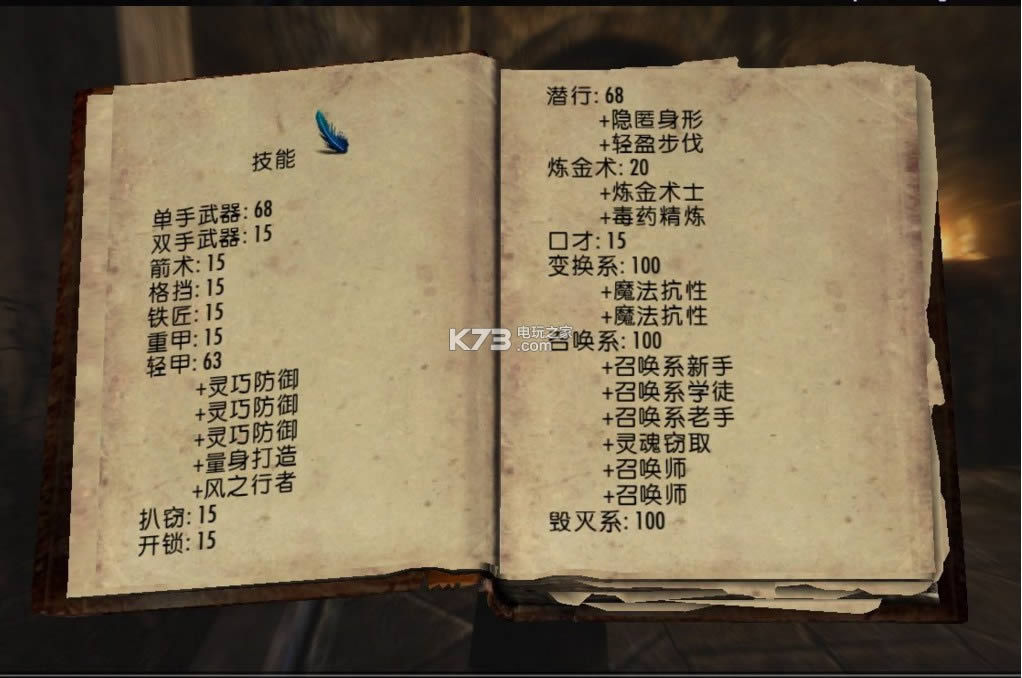 技能
单手武器: 68
双手武器: 15
箭术: 15
格挡: 15
铁匠: 15
重甲: 15
轻甲: 63
+灵巧防御
+灵巧防御
+灵巧防御
+量身打造
+风之行者
扒窃: 15
开锁: 15
潜行: 68
+隐匿身形
+轻盈步伐
炼金术: 20
+炼金术士
+毒药精炼
口才: 15
变换系: 100
+魔法抗性
+魔法抗性
召唤系: 100
+召唤系新手
+召唤系学徒
+召唤系老手
+灵魂窃取
+召唤师
+召唤师
毁灭系: 100
K73 电玩之家
.com